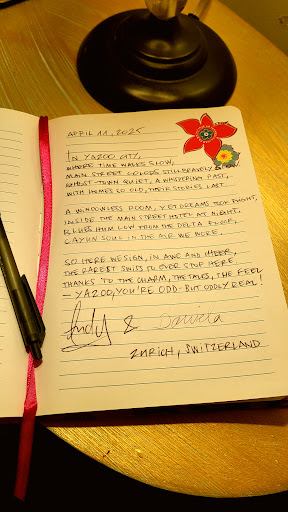 APRIL 11, 2025
IN YAZOO CITY,
WHERE TIME WALKS SLOW,
MAIN STREET COLORS STILL BRAVELY GLOW
GHOST-TOWN QUIET, A WHISPERING PAST,
WITH HOMES SO OLD, THEIR STORIES LAST.
A WINDOWLESS ROOM, YET DREAMS TOOK FLIGHT,
INSIDE THE MAIN STREET HOTEL AT NIGHT.
BLUES HUM LOW FROM THE DELTA FLOOR,
CAJUN SOUL IN THE AIR WE WORE.
SO HERE WE SIGN, IN AWE AND CHEER,
THE RAREST SWISS TO EVER STOP HERE.
THANKS TO THE CHARM, THE TALES, THE FEEL
– YAZOO, YOU'RE ODD – BUT ODDLY REAL!
Andy & Daniela
ZURICH, SWITZERLAND